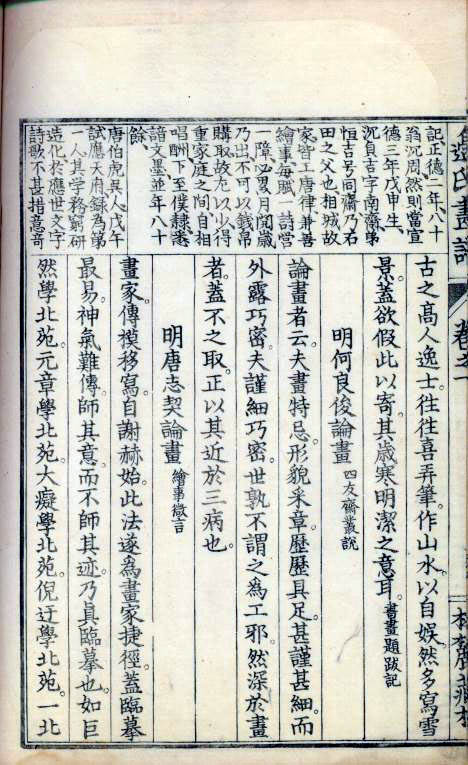 記正德二年八十
翁沉周然則當宣
德三年戊申生、
沉貞吉字南齋、苐
恒吉号同齋乃石
田之父也相城故
家皆工唐律兼善
繪事每賦一詩營
一障、必累月閱歲
乃出不可以錢帛
購取故尤以少得
重家庭之間自相
唱酬下至僕隸悉
諳文墨並年八十
餘、
唐伯虎吳人、戊午
試應天府錄為苐
一人其學務窮研
造化於應世文字
詩歌不甚措意奇
古之髙人逸士。徃徃喜弄筆。作山水。以自娛。然多寫雪
景。蓋欲假此以寄其歲寒明潔之意耳。書畫題跋記
明何良俊論畫 四友齋叢說
論畫者云。夫畫特忌。形貌采章。歷歷具足。甚謹甚細。而
外露巧密。夫謹細巧密。世孰不謂之為工耶。然深於畫
者。蓋不之取。正以其近於三病也。
明唐志契論畫 繪事微言
畫家傳模移寫。自謝赫始。此法遂為畫家捷徑。蓋臨摹
最易。神氣難傳。師其意。而不師其迹。乃眞臨摹也。如巨
然學北苑。元章學北苑。大癡學北苑。倪迂學北苑。一北